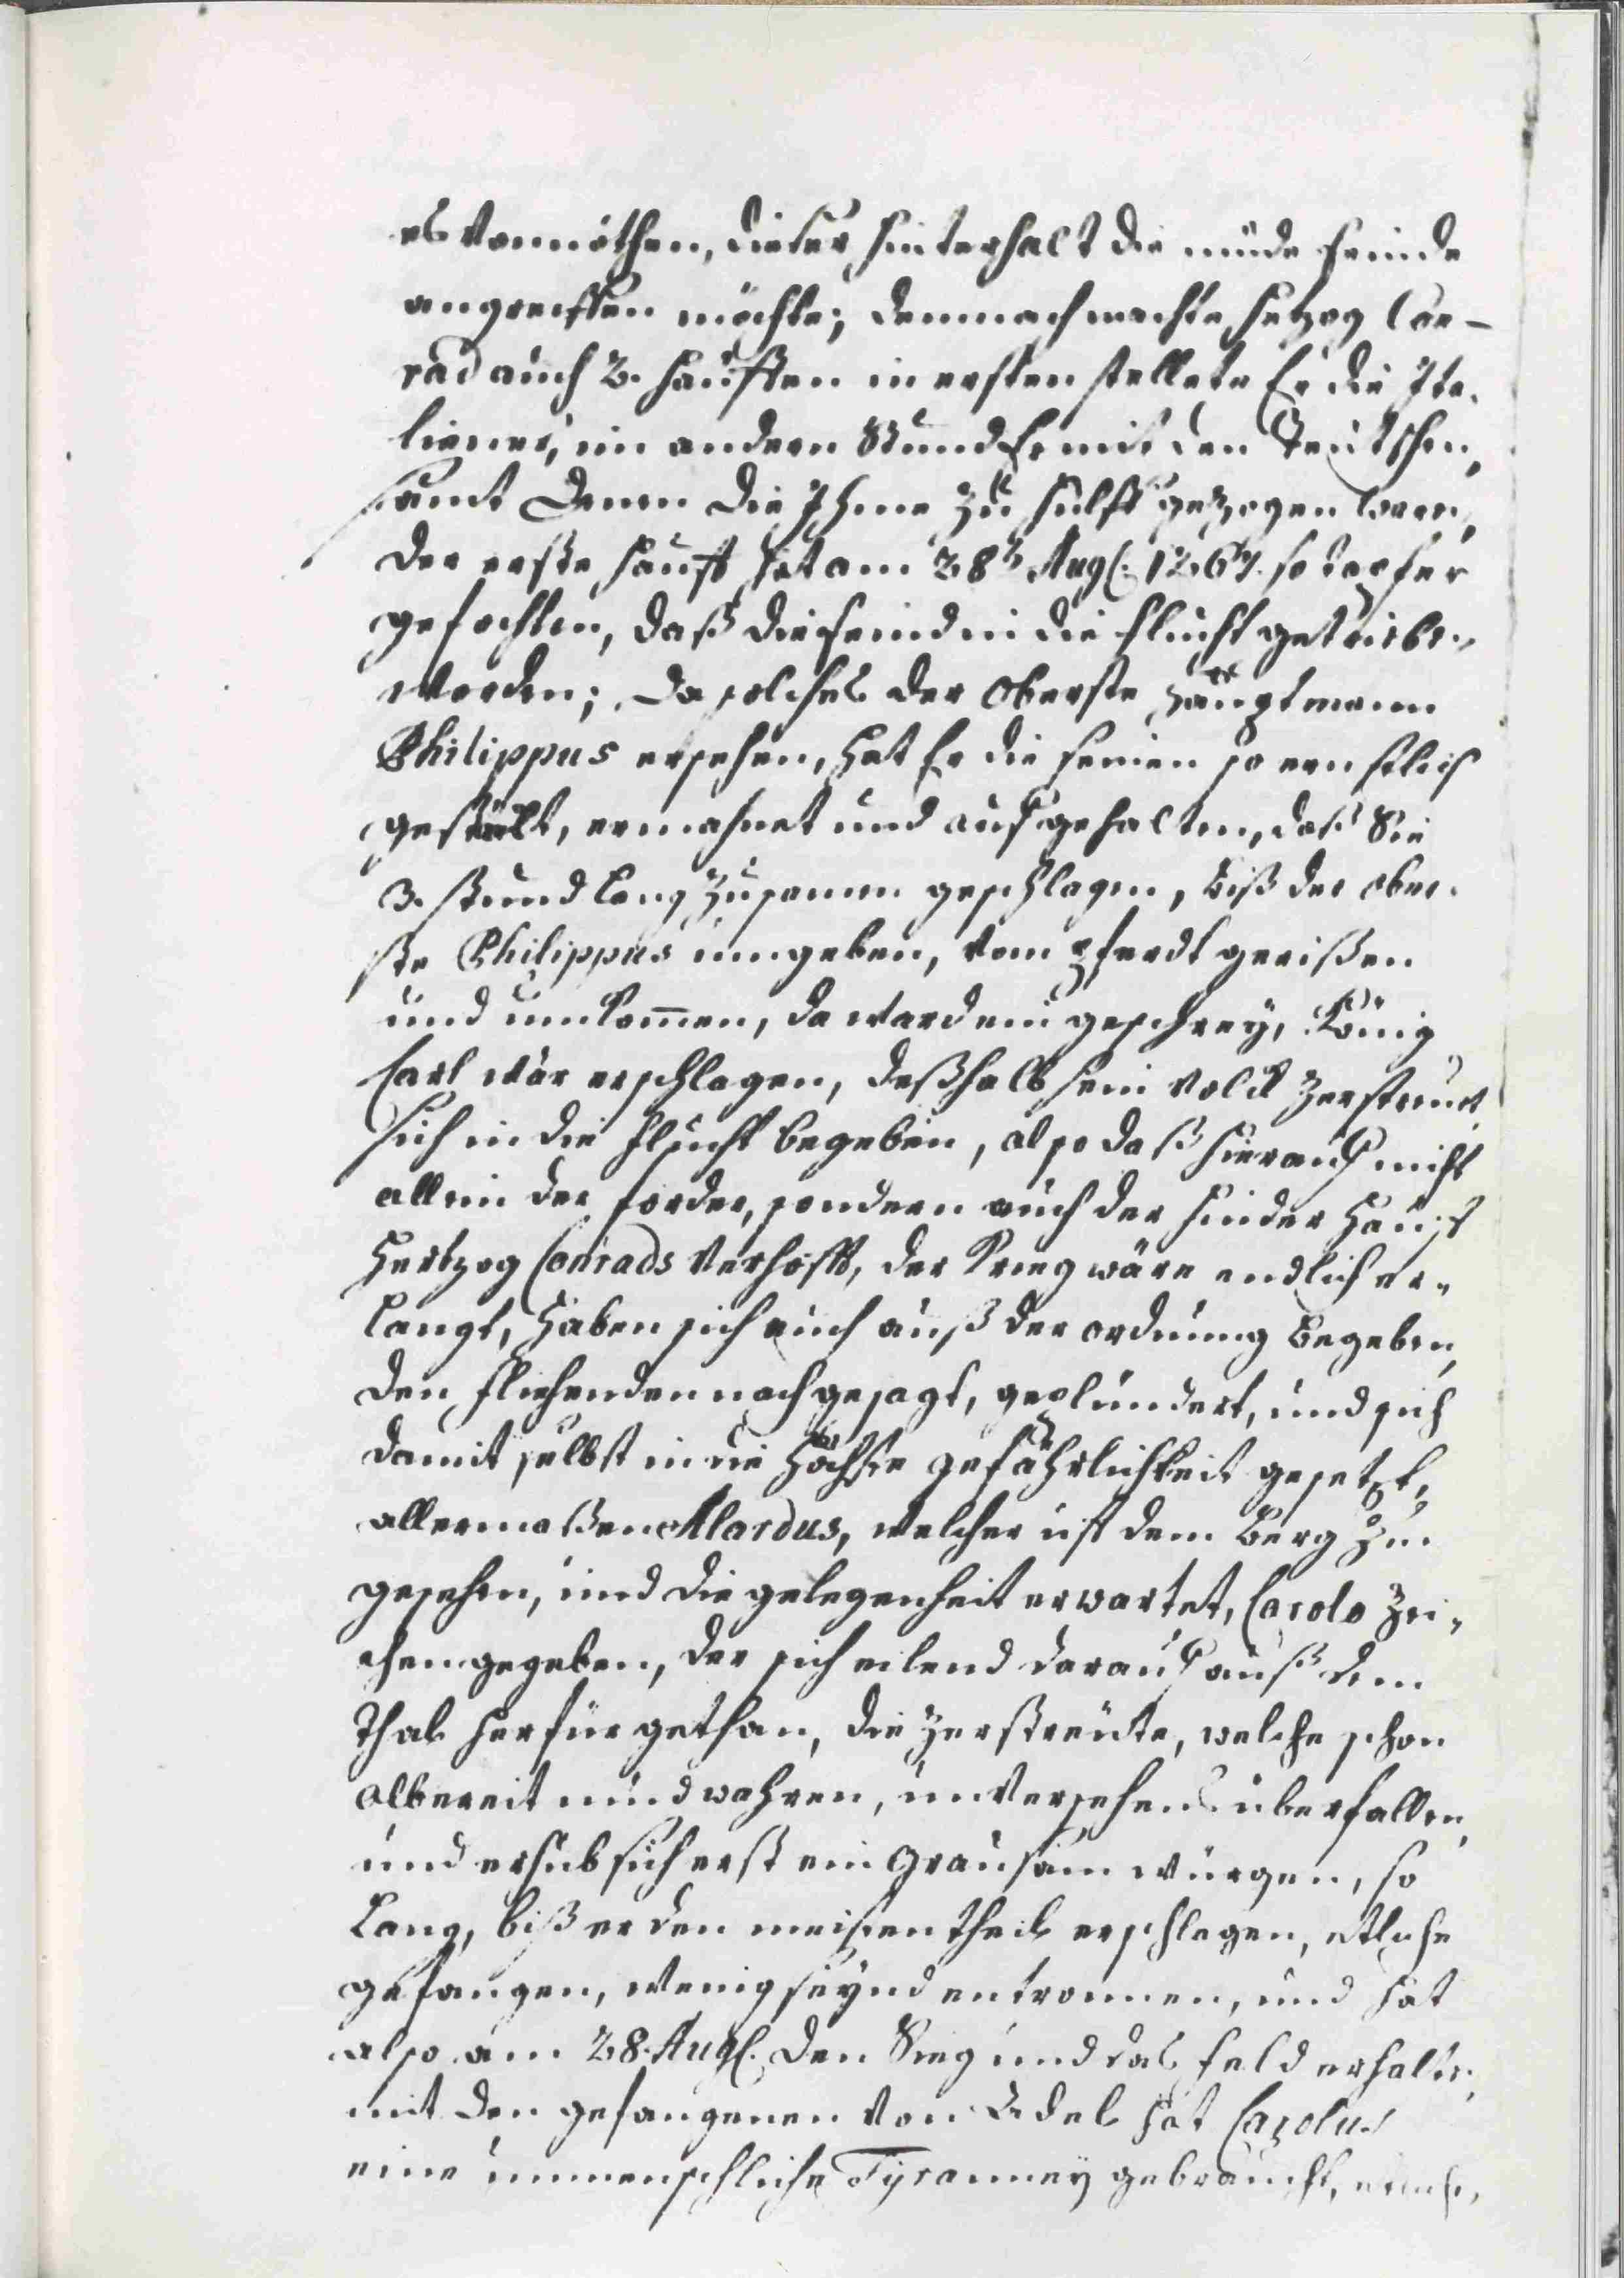 es Vonnöthen, dieser hinterhalt die müde feinde
angreiffen möchte; demnach machte Hertzog Con-
rad auch 2. hauffen in ersten stellete Er die Ita-
liener, im andern Stund Er mit den Teutschen,
samt denen die Ihme zu hülff gezogen waren,
der erste hauff hat am 28ᵗ Aug. 1267. so tapfer
gefochten, daß die feind in die flucht getrieben
worden; da solches der Oberste Hauptmann
Philippus ersehen, hat Er die seinen so ernstlich
gestillt, ermahnet und aufgehalten, daß Sie
3. stund lang zusamen geschlagen, biß der ober-
ste Philippus umgeben, vom Pferdt gerißen
und umkom̅en, da ward ein geschrey, König
Carl wär erschlagen, deßhalb sein Volck zerstreut
sich in die flucht begeben, also daß hierauf nicht
allein der forder, sondern auch der hinder Hauff
Hertzog Conrads Verhofft, der Krieg wäre endlich er-
langt, haben sich auch auß der ordnung begeben,
den fliehenden nachgejagt, geplündert, und sich
damit selbst in die höchste gefährlichkeit gesetzt,
allermaßen Alardus, welcher uff dem Berg zu-
gesehen, und die gelegenheit erwartet, Carolo Zei-
chen gegeben, der sich eilend darauf auß dem
Thal herfür gethan, die zerstreute, welche schon
albereit müd wahren, unversehens überfallen,
und erhub sich erst ein grausam würgen, so
lang, biß er den meisten theil erschlagen, etliche
gefangen, wenig seynd entronnen, und hat
also am 28. Aug. den Sieg und das feld erhalten,
mit den gefangenen Von Adel hat Carolus
eine unmenschliche Tyranney gebraucht,